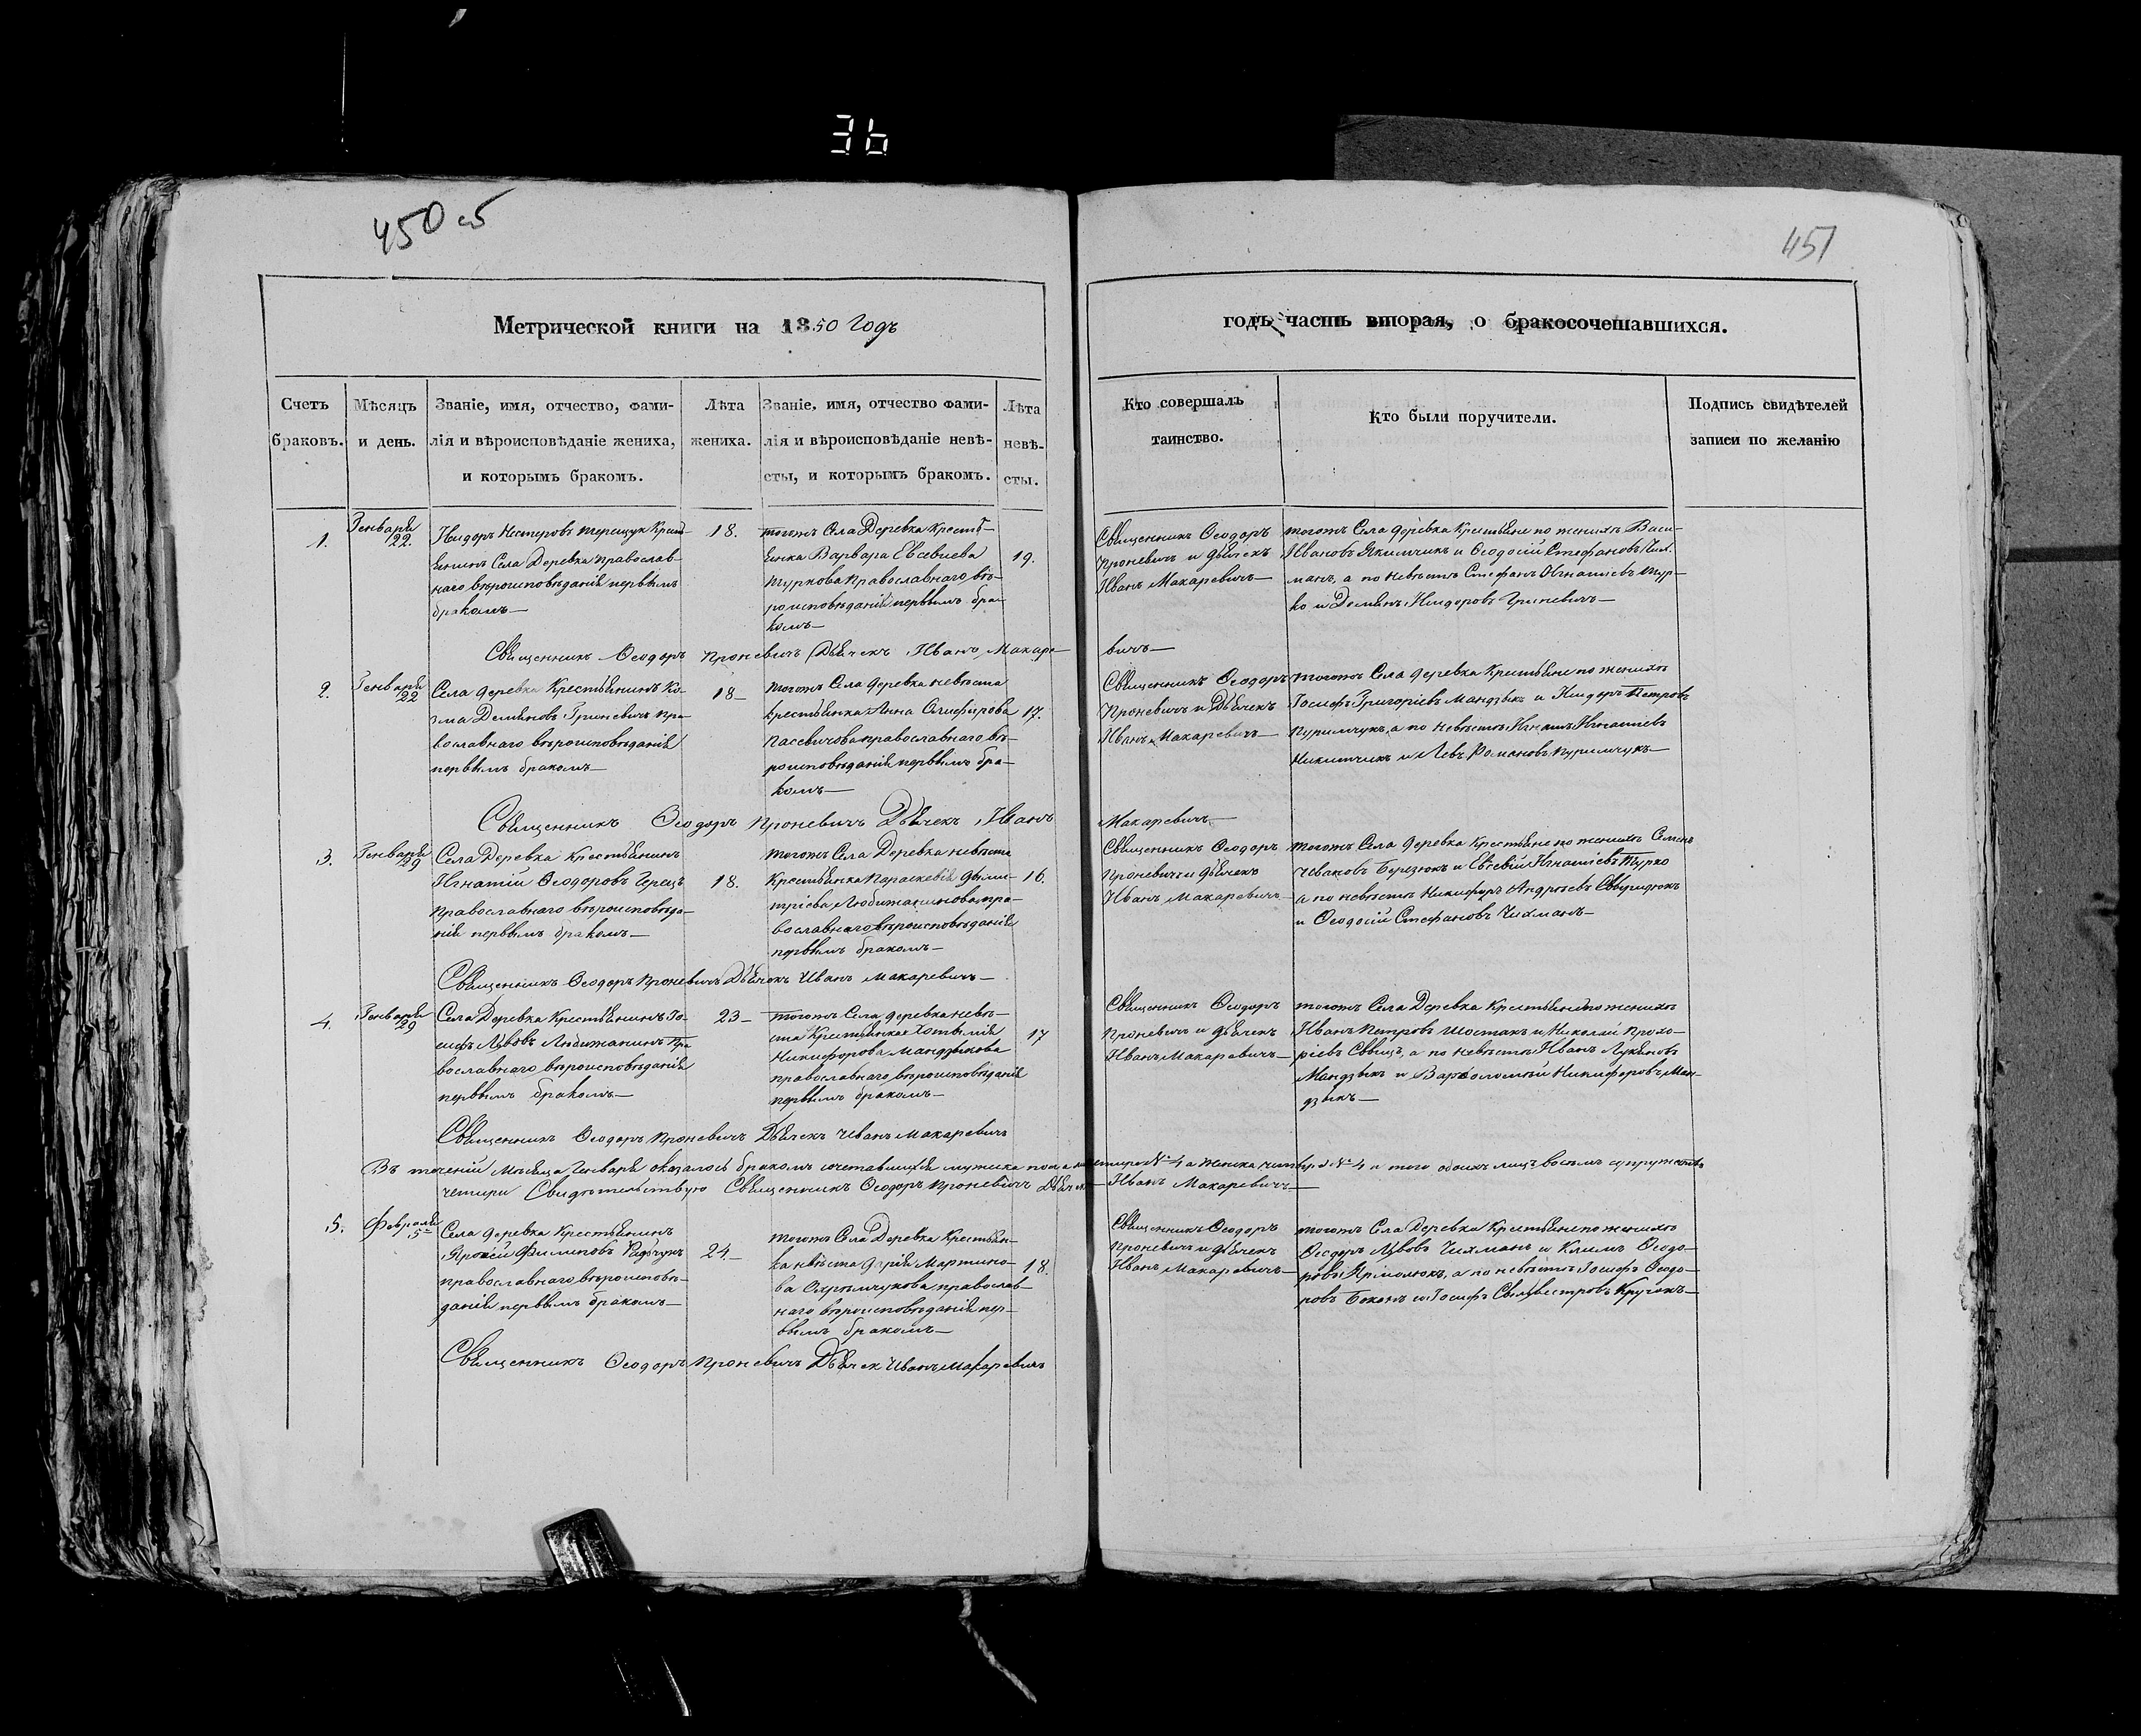 36
450 об
451
Метрической книги на 1850 Годъ
годъ часть вторая, о бракосочетавшихся.
Счетъ
браковъ.
Мѣсяцъ
и день.
Званіе, имя, отчество, фами-
лія и вѣроисповѣданіе жениха,
и которымъ бракомъ.
Лѣта
жениха.
Званіе, имя, отчество фами-
лія и вѣроисповѣданіе невѣ-
сты, и которымъ бракомъ.
Лѣта
невѣ-
сты.
Кто совершалъ
таинство.
Кто были поручители.
Подпись свидѣтелей
записи по желанію
1.
Генваря
22.
Нестеровъ Терещук Крест-
янинъ Села Деревка Православ-
наго вѣроисповѣданія первымъ
бракомъ
18.
тогожъ Села Деревка Крестя-
янка Варвара Евсевиева
Туркова Православнаго вѣ-
роисповѣданія первымъ бра-
комъ
19.
Священникъ Ѳеодоръ
Проневичъ и дьячекъ
Иванъ Макаревичъ
тогожъ Села деревка Крестьяне по женихѣ Васи-
Ивановъ Якимчикъ и Ѳеодосій Стефановъ Чих-
манъ, а по невѣстѣ Стефанъ Игнатіевъ Тур-
ко и Демянъ Гриневичъ
Священникъ Ѳеодоръ Проневичъ Дьячекъ Иванъ Макаре-
вичъ
2.
Генваря
22
Села деревка Крестьянинъ Ко-
зма Демяновъ Гриневичъ Пра-
вославнаго вѣроисповѣданія
первымъ бракомъ
18
тогожъ Села деревка невѣста
крестьянка Анна
Пасевичова православнаго вѣ-
роисповѣданія первымъ бра-
комъ
17.
Священникъ Ѳеодоръ
Проневичъ и Дьячекъ
Иванъ Макаревичъ
тогожъ Села деревка Крестьяне по женихѣ
Іосифъ Григоріевъ Мандзыкъ и Петровъ
Пуримчукъ, а по невѣстѣ Игнатъ Игнатіевъ
Никитчикъ и Левъ Романовъ Пуримчукъ
Священникъ Ѳеодоръ Проневичъ Дьячекъ Иванъ
Макаревичъ
3.
Генваря
29
Села Деревка Крестьянинъ
Игнатій Ѳеодоровъ
православнаго вѣроисповѣда-
нія первымъ бракомъ
18.
тогожъ Села Деревка невѣста
Крестьянка Параскевія Дыми-
тріева пра-
вославнаго вѣроисповѣданія
первымъ бракомъ
16.
Священникъ Ѳеодоръ
Проневичъ и дьячекъ
Иванъ Макаревичъ
тогожъ Села деревка Крестьяне по женихѣ Семенъ
Березюкъ и Евсевій Игнатіевъ Турко
а по невѣстѣ Никифоръ Андреевъ Свиридюкъ
и Ѳеодосій Стефановъ Чихманъ
Священникъ Ѳеодоръ Проневичъ Дьячокъ Иванъ Макаревичъ
4.
Генваря
29
Села Деревка Крестьянинъ Іо-
сифъ Львовъ Любежанинъ Пра
вославнаго вѣроисповѣданія
первымъ бракомъ
23
тогожъ Села деревка невѣ-
ста Крестьянка
Никифорова Мандзюкова
православнаго вѣроисповѣданія
первымъ бракомъ
17
Священникъ Ѳеодоръ
Проневичъ и дьячекъ
Иванъ Макаревичъ
тогожъ Села Деревка Крестьяне по женихѣ
Иванъ Петровъ Шостакъ и Николай Прохо-
ріевъ а по невѣстѣ Иванъ Лукяновъ
Мандзыкъ и Варѳоломей Никифоровъ Ман-
дзыкъ
Священникъ Ѳеодоръ Проневичъ Дьячекъ Иванъ Макаревичъ
Въ теченій Мѣсяца Генваря оказалось бракомъ сочетавшихся № 4 а № 4 и того обоихъ лицъ восемъ супружествъ
четири Свидѣтельствую Священникъ Ѳеодоръ Проневичъ Дьячекъ Иванъ Макаревичъ
5.
Февраля
5
Села деревка Крестьянинъ
Филиповъ
православнаго вѣроисповѣ-
данія первымъ бракомъ
24
тогожъ Села Деревка Крестьян-
ка невѣста Дарія Мартино-
ва православ-
наго вѣроисповѣданія пер-
вымъ бракомъ
18.
Священникъ Ѳеодоръ
Проневичъ и дьячекъ
Иванъ Макаревичъ
тогожъ Села Деревка Крестьяне по женихѣ
Ѳеодоръ Львовъ Чихманъ и Климъ Ѳеодо-
ровъ Ярмолюкъ, а по невѣстѣ Іосифъ Ѳеодо-
ровъ и Іосифъ Сильвестровъ Кручокъ
Священникъ Ѳеодоръ Проневичъ Дьячек Иванъ Макаревичъ